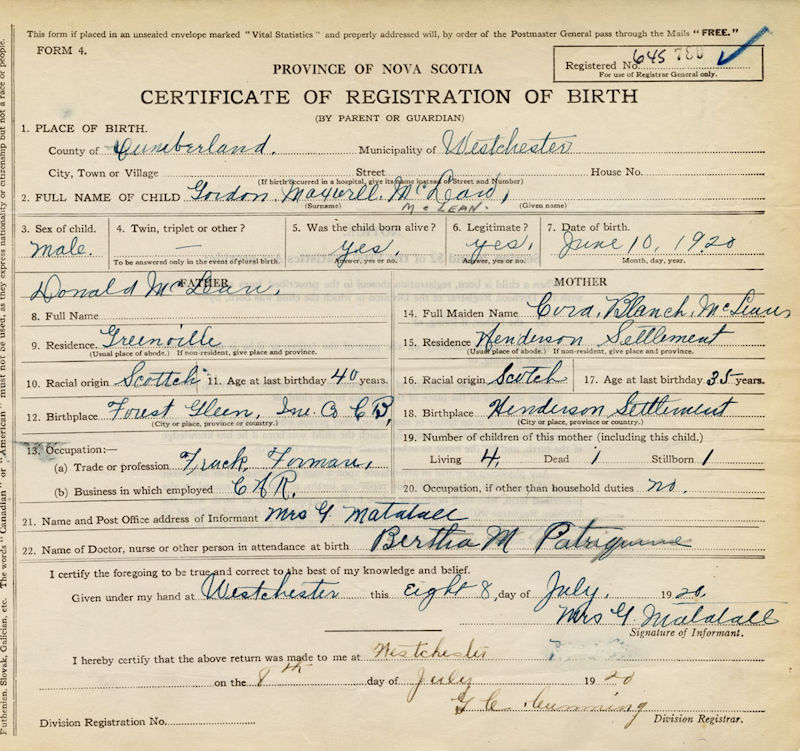 This form if placed in an unsealed envelope marked "Vital Statistics" and properly addressed will, by order of the Postmaster General pass through the Mails "FREE."
FORM 4.
Registered No. 645
For use of Registrar General only.
PROVINCE OF NOVA SCOTIA
CERTIFICATE OF REGISTRATION OF BIRTH
(BY PARENT OR GUARDIAN)
1. PLACE OF BIRTH.
County of Cumberland. Municipality of Westchester
City, Town or Village Street House No.
(If birth occurred in a hospital, give its name instead of Street and Number)
2. FULL NAME OF CHILD Gordon Maxwell McLean,
(Surname) McLEAN. (Given name)
3. Sex of child. 4. Twin, triplet or other? 5. Was the child born alive? 6. Legitimate? 7. Date of birth.
Male. — yes, yes, June 10, 1920
To be answered only in the event of plural birth. Answer, yes or no. Answer, yes or no. Month, day, year.
FATHER MOTHER
Donald McLean,
8. Full Name 14. Full Maiden Name Cora, Blanch, McLean
9. Residence Greenville 15. Residence Henderson Settlement
(Usual place of abode.) If non-resident, give place and province. (Usual place of abode.) If non-resident, give place and province.
10. Racial origin Scottch 11. Age at last birthday 40 years. 16. Racial origin Scotch 17. Age at last birthday 35 years.
12. Birthplace Forest Gleen, C B, 18. Birthplace Henderson Settlement
(City or place, province or country.) (City or place, province or country.)
13. Occupation:— 19. Number of children of this mother (including this child.)
(a) Trade or profession Truck, Forman, Living 4, Dead 1 Stillborn 1
(b) Business in which employed 20. Occupation, if other than household duties no.
21. Name and Post Office address of Informant Mrs G Matatall
22. Name of Doctor, nurse or other person in attendance at birth Bertha M Patriquine
I certify the foregoing to be true and correct to the best of my knowledge and belief.
Given under my hand at Westchester this Eight 8, day of July, 1920.
Mrs G. Matatall
Signature of Informant.
I hereby certify that the above return was made to me at Westchester
on the 8th day of July 1920
G C Cumming
Division Registration No. Division Registrar.
Ruthenian, Slovak, Galician, etc. The words "Canadian" or "American" must not be used, as they express nationality or citizenship but not a race or people.